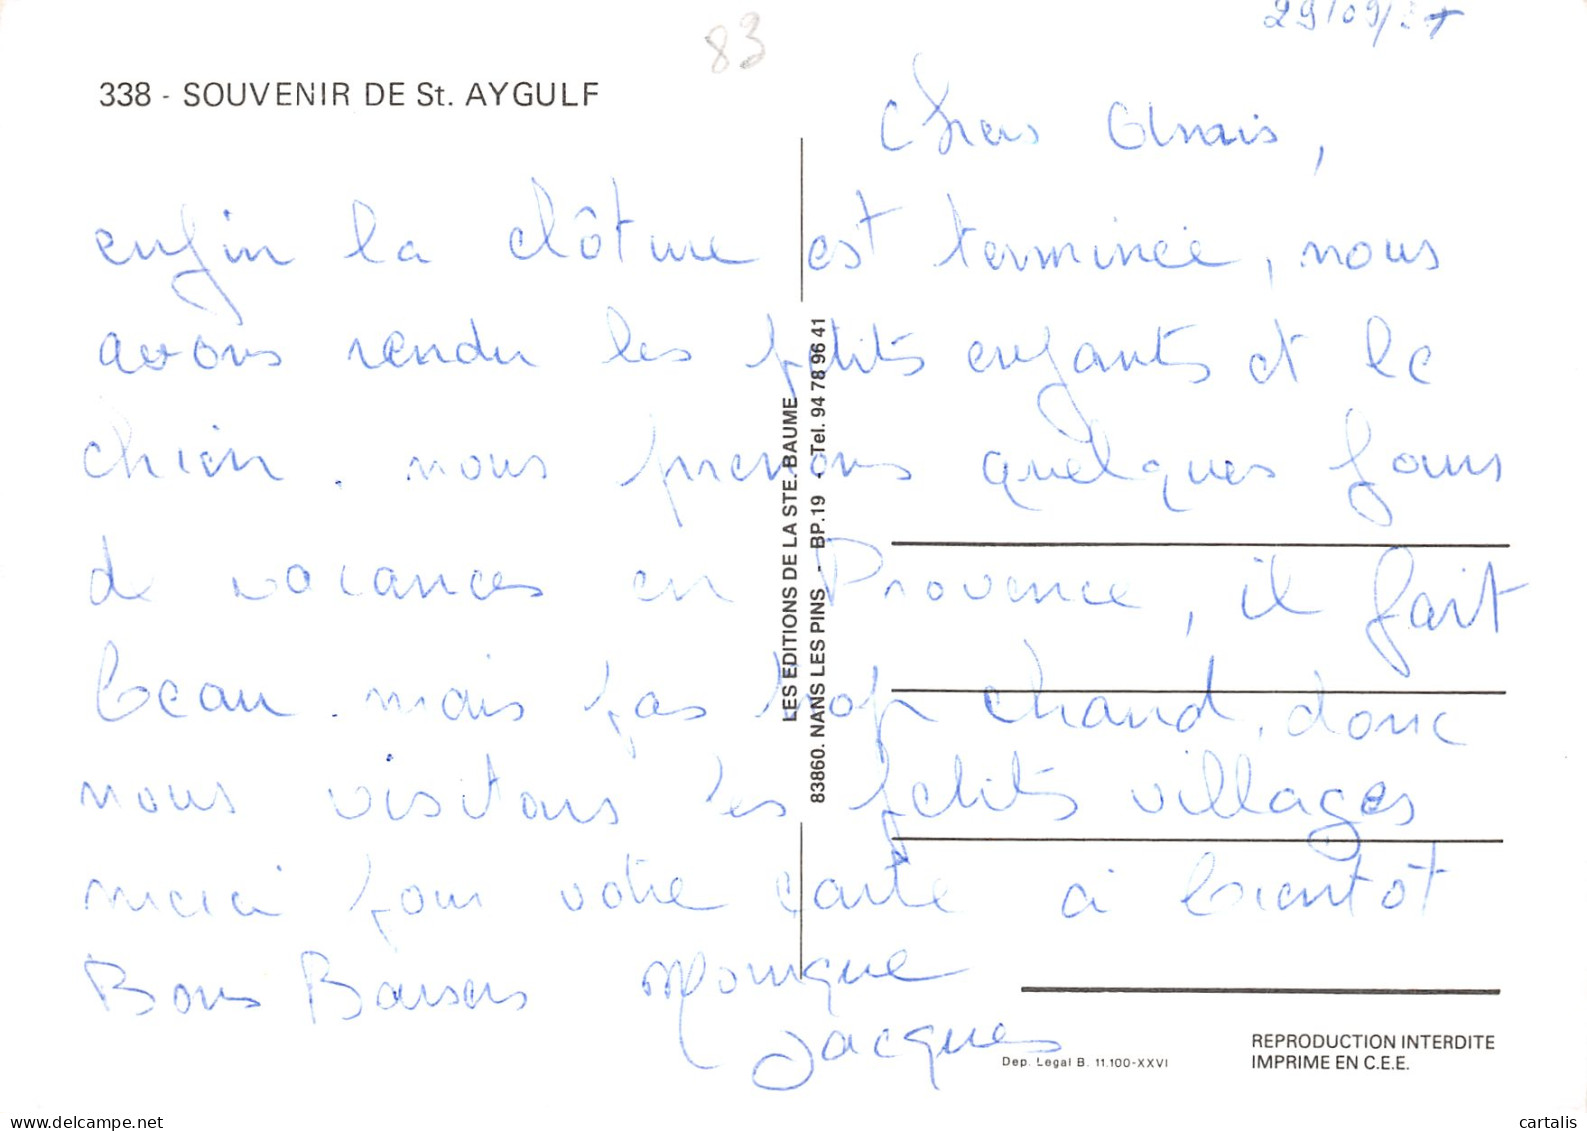 83
29/09/
338 - SOUVENIR DE St. AYGULF
Chers Anais,
enfin la clôture est terminée, nous
avons rendu les petits enfants et le
chien. nous prenons quelques jours
de vacances en Provence, il fait
beau. mais pas trop chaud, donc
nous visitons les petits villages
merci pour votre carte à bientôt
Bons Baisers Monique
Jacques
LES EDITIONS DE LA STE. BAUME
83860. NANS LES PINS - BP.19 - Tel. 94 78 96 41
Dep. Legal B. 11.100-XXVI
REPRODUCTION INTERDITE
IMPRIME EN C.E.E.
delcampe.net
cartalis